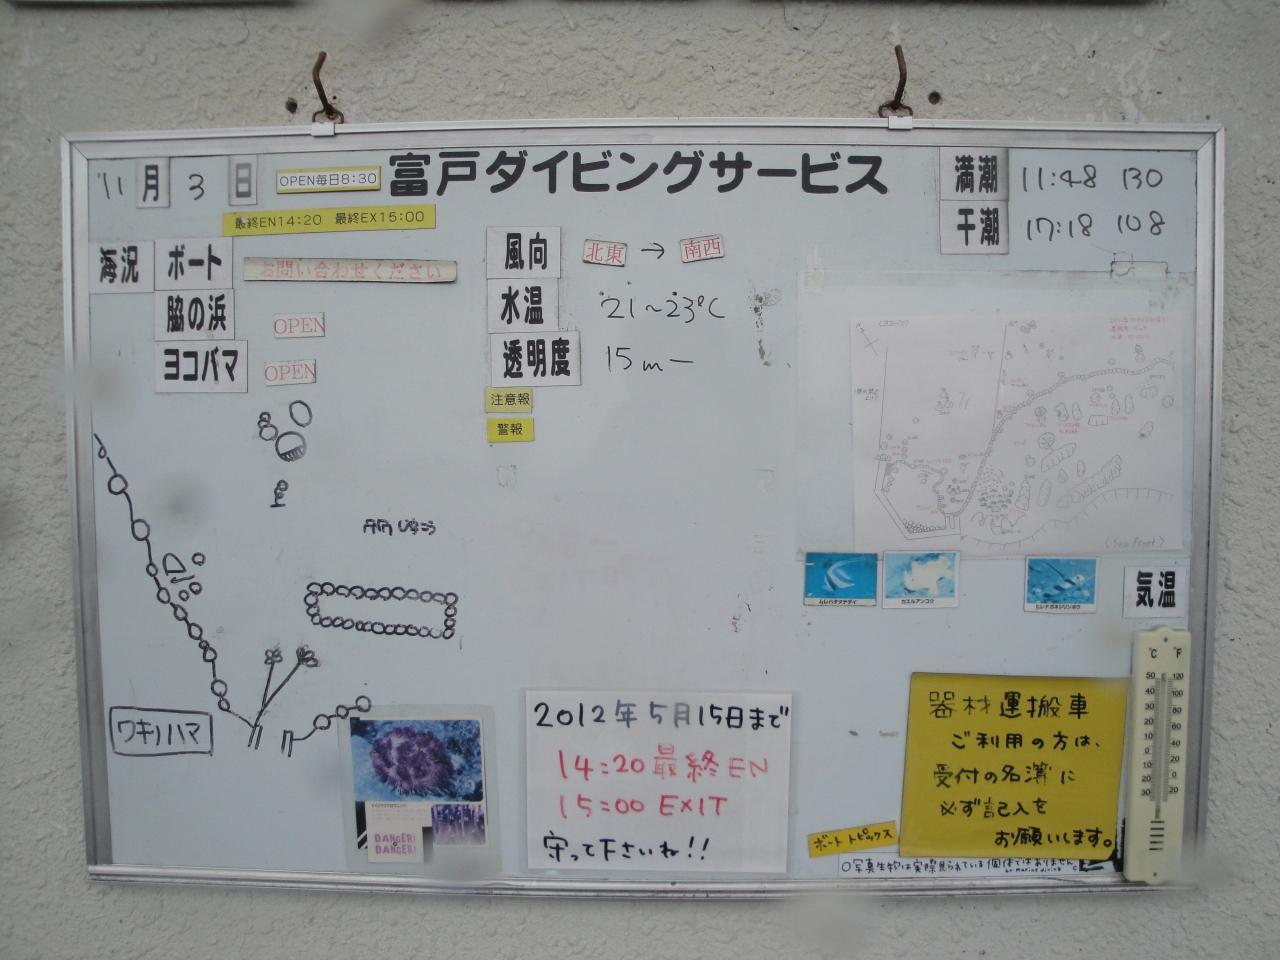 11月3日
OPEN毎日8:30
富戸ダイビングサービス
満潮 11:48 130
干潮 17:18 108
最終EN14:20 最終EX15:00
海況
ボート お問い合わせください
脇の浜 OPEN
ヨコバマ OPEN
風向 北東 → 南西
水温 21~23℃
透明度 15m-
注意報
警報
ワキノハマ
DANGER!
DANGER!
2012年5月15日まで
14:20最終EN
15:00 EXIT
守って下さいね!!
(Sea Front)
ムレハタタテダイ
カエルアンコウ
気温
°C °F
器材運搬車
ご利用の方は、
受付の名簿に
必ず記入を
お願いします。
ボートトピックス
○写真生物は実際見られている個体ではありません